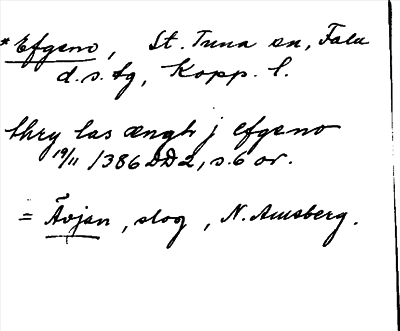 * Efgeno, St. Tuna sn, Falu
d.s. tg, Kopp. l.
thry las ængh j efgeno
19/11 1386 DD2, s. 6 or.
= Ävjan, slog, N. Amsberg.